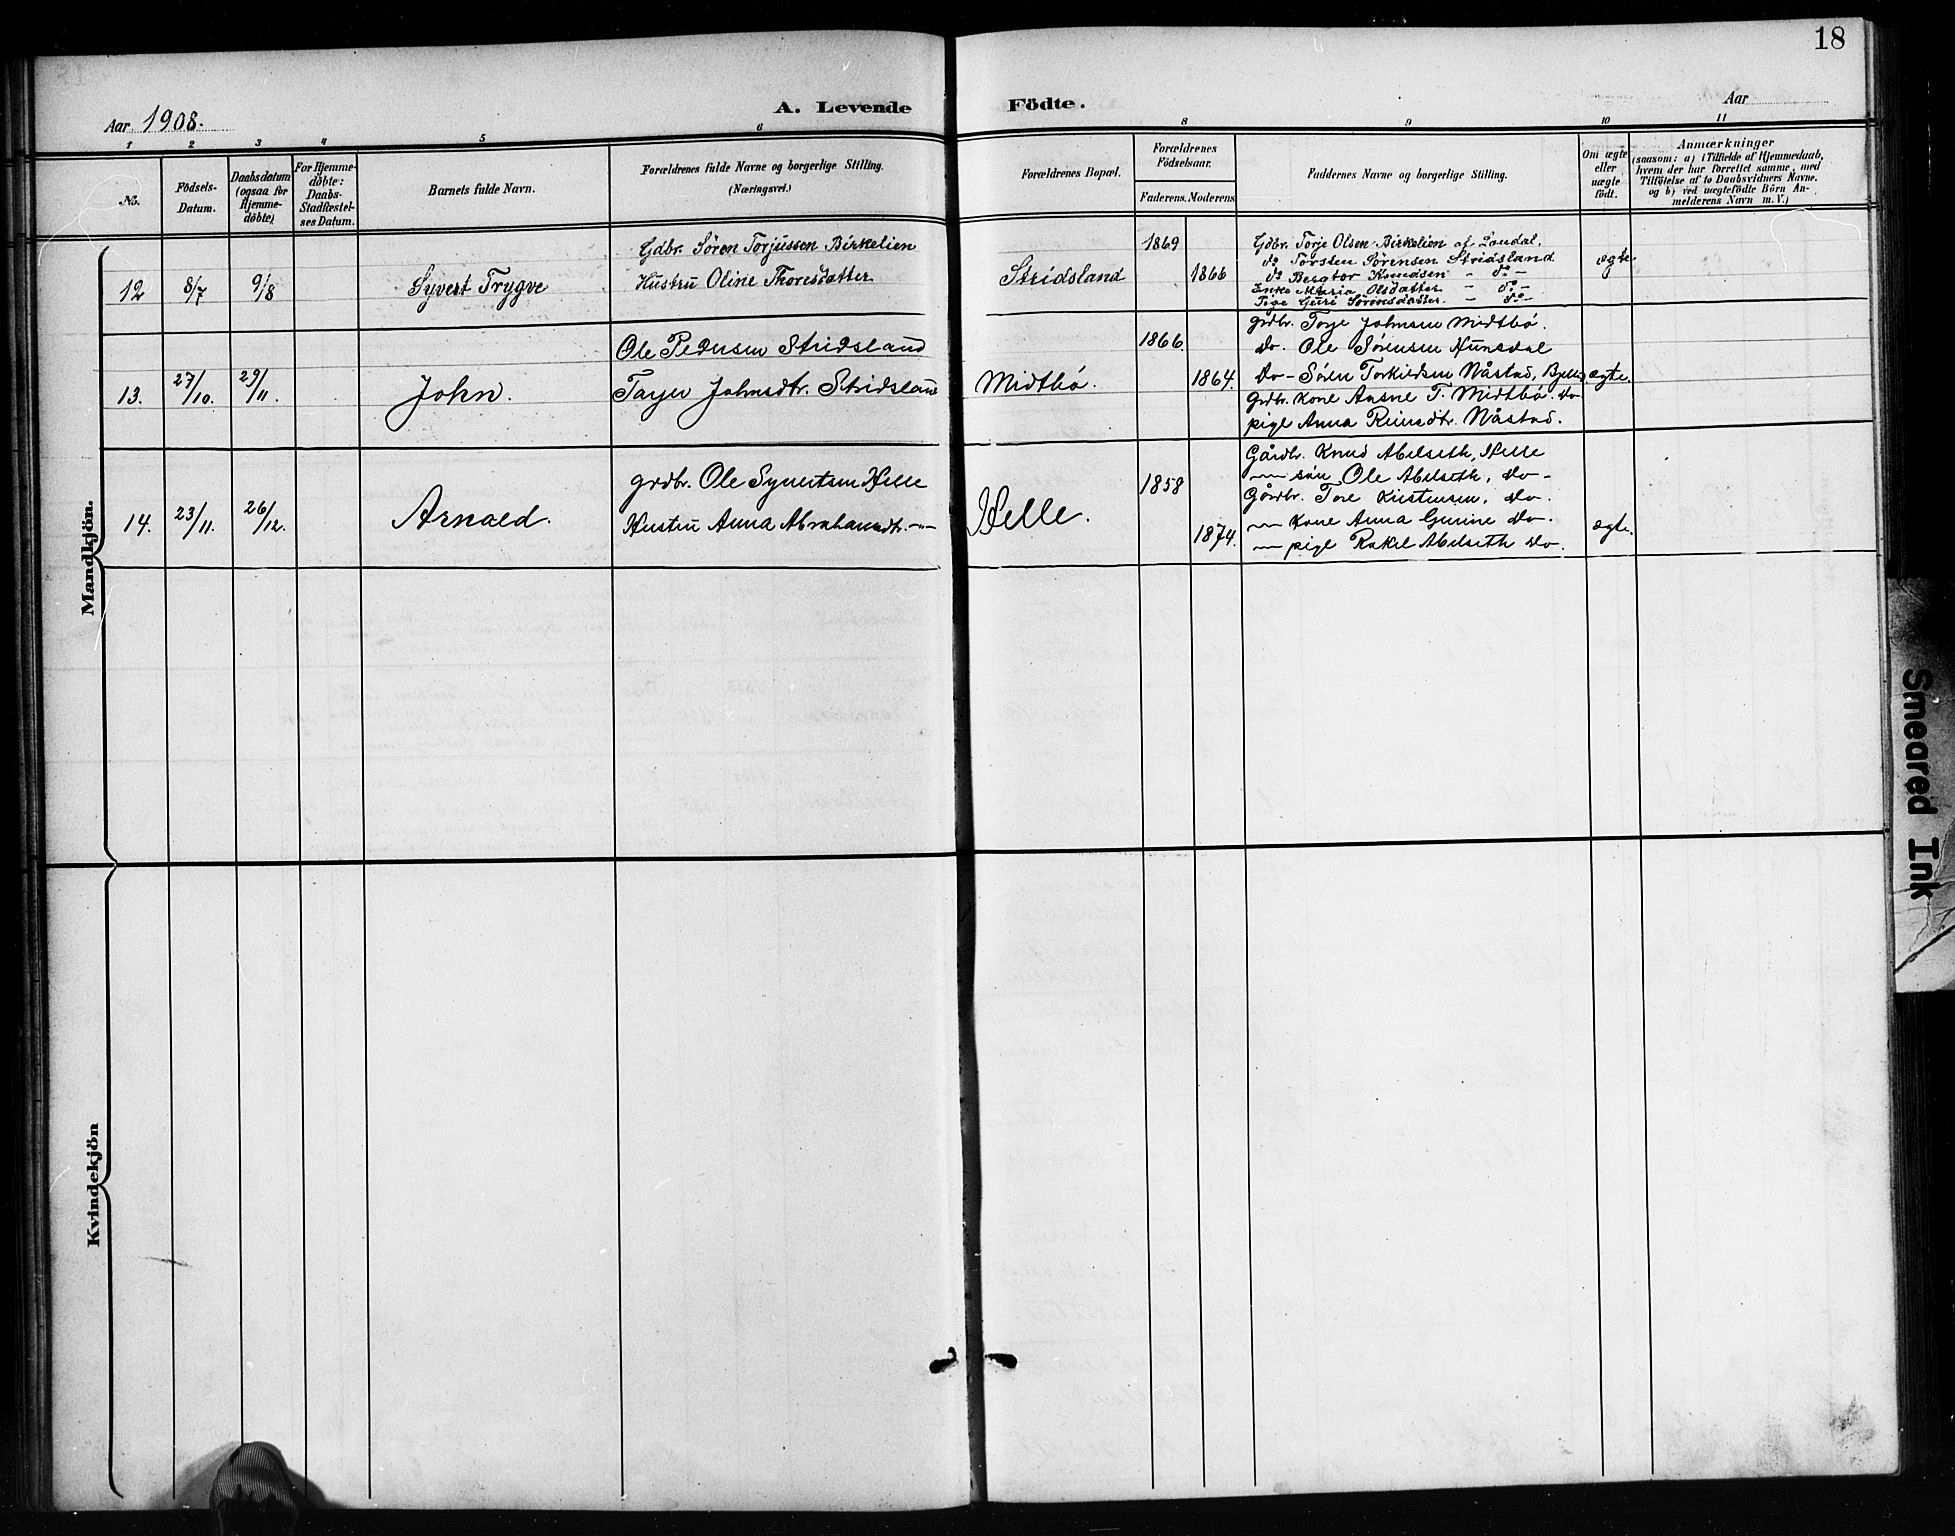 18
Aar 1908.
A. Levende Födte.
Aar
1 2 3 4 5 6 8 9 10 11
No.
Födsels-
Datum.
Daabsdatum
(ogsaa for
Hjemme-
döbte)
For Hjemme-
döbte:
Daabs-
Stadfæstel-
ses Datum.
Barnets fulde Navn.
Forældrenes fulde Navne og borgerlige Stilling.
(Næringsvei.)
Forældrenes Bopæl.
Forældrenes
Födselsaar.
Faderens. Moderens
Faddernes Navne og borgerlige Stilling.
Om ægte
eller
uægte
födt.
Anmærkninger
(saasom: a) i Tilfælde af Hjemmedaab,
hvem der har forrettet samme, med
Tilföielse af to Daabsvidners Navne,
og b) ved uægtefödte Börn An-
melderens Navn m. V.)
Mandkjön.
12 8/7 9/8 Syvert Trygve
Gdbr. Sören Torjussen Birkelien
Hustru Oline Thoresdatter
Stridsland
1869
1866
Gdbr. Torje Olsen Birkelien af Laudal.
do Torsten Sörensen Stridsland
do Bergtor Knudsen - do -
Enke Maria Olsdatter - do -
Pige Guri Sörensdatter - do -
ægte
13. 27/10. 29/11. John.
Ole Pedersen Stridsland
Tayer Johnsdtr. Stridsland
Midtbö.
1866.
1864.
grdbr. Torje Johnsen Midtbö.
do. Ole Sörensen Hunsdal
do - Sören Torkildsen Nåstad, Bjell
grdbr. kone Aasne T. Midtbö. do
pige Anna Reinsdtr. Nåstad.
ægte.
14. 23/11. 26/12. Arnold.
grdbr. Ole Syvertsen Helle
Hustru Anna Abrahamsdtr. -"-
Helle.
1858
1874.
Gårdbr. Knud Abelseth, Helle
— sön Ole Abelseth, do -
Gårdbr. Tore Kristensen, do.
— kone Anna Gurine do.
— pige Rakel Abelseth do.
ægte.
Kvindekjön
Smeared Ink